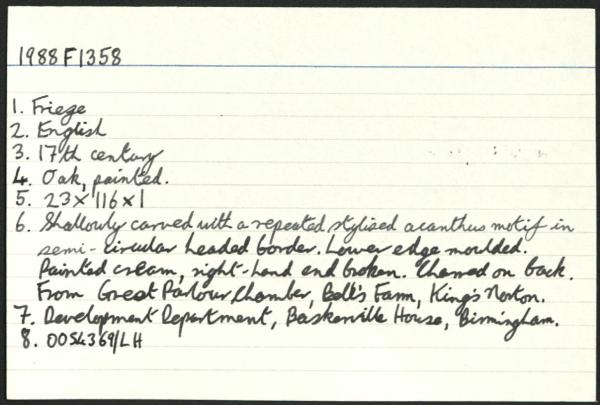 1988F1358
1. Frieze
2. English
3. 17th century
4. Oak, painted.
5. 23 x 116 x 1
6. Shallowly carved with a repeated stylised acanthus motif in
semi-circular beaded border. Lower edge moulded.
Painted cream, right-hand end broken. Charred on back.
From Great Parlour Chamber, Bell's Farm, King's Norton.
7. Development Department, Baskerville House, Birmingham.
8. 0054369/LH